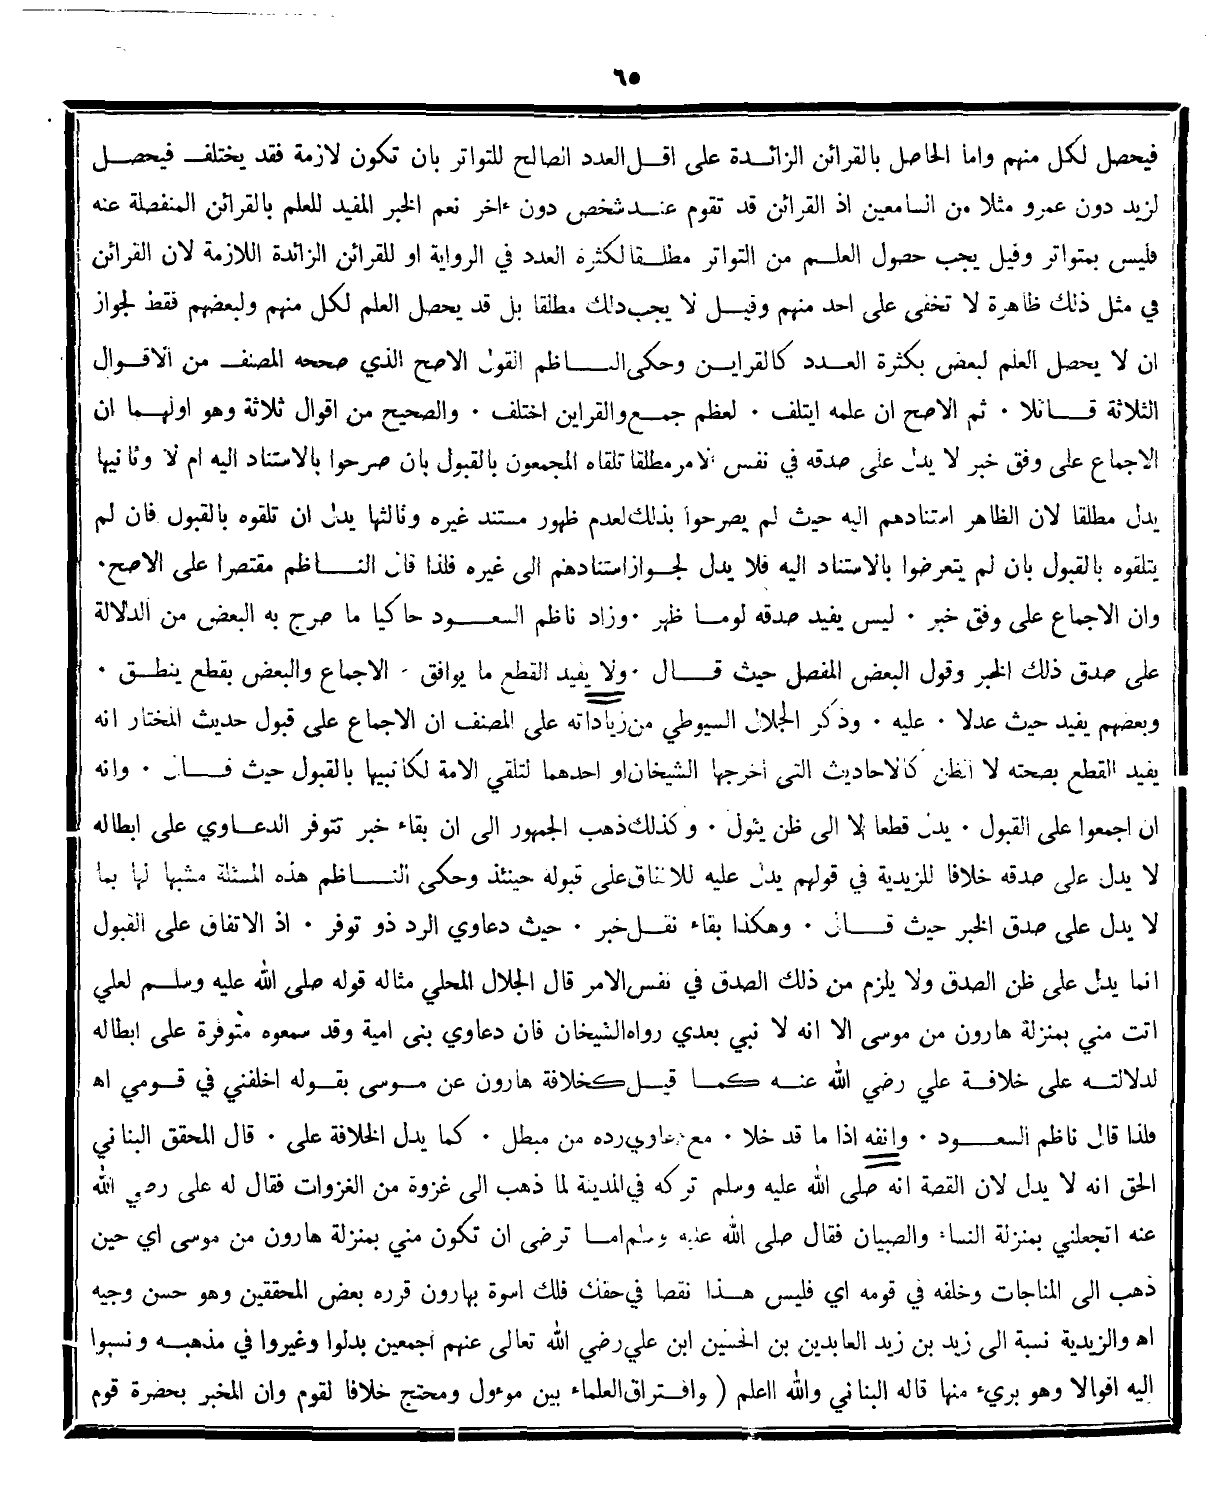 ٦٥
فيحصل لكل منهم واما الحاصل بالقرائن الزائدة على اقل العدد الصالح للتواتر بان تكون لازمة فقد يختلف فيحصل
لزيد دون عمرو مثلا من السامعين اذ القرائن قد تقوم عند شخص دون ءاخر نعم الخبر المفيد للعلم بالقرائن المنفصلة عنه
فليس بمتواتر وقيل يجب حصول العلم من التواتر مطلقا لكثرة العدد في الرواية او للقرائن الزائدة اللازمة لان القرائن
في مثل ذلك ظاهرة لا تخفى على احد منهم وقيل لا يجب ذلك مطلقا بل قد يحصل العلم لكل منهم ولبعضهم فقط لجواز
ان لا يحصل العلم لبعض بكثرة العدد كالقراين وحكى الناظم القول الاصح الذي صححه المصنف من الاقوال
الثلاثة قائلا ٠ ثم الاصح ان علمه ايتلف ٠ لعظم جمع والقراين اختلف ٠ والصحيح من اقوال ثلاثة وهو اولهما ان
الاجماع على وفق خبر لا يدل على صدقه في نفس الامر مطلقا تلقاه المجمعون بالقبول بان صرحوا بالاستناد اليه ام لا وثانيها
يدل مطلقا لان الظاهر استنادهم اليه حيث لم يصرحوا بذلك لعدم ظهور مستند غيره وثالثها يدل ان تلقوه بالقبول فان لم
يتلقوه بالقبول بان لم يتعرضوا بالاستناد اليه فلا يدل لجواز استنادهم الى غيره فلذا قال الناظم مقتصرا على الاصح٠
وان الاجماع على وفق خبر ٠ ليس يفيد صدقه لوما ظهر ٠وزاد ناظم السعود حاكيا ما صرح به البعض من الدلالة
على صدق ذلك الخبر وقول البعض المفصل حيث قال ٠ولا يفيد القطع ما يوافق ٠ الاجماع والبعض بقطع ينطق ٠
وبعضهم يفيد حيث عدلا ٠ عليه ٠ وذكر الجلال السيوطي من زياداته على المصنف ان الاجماع على قبول حديث المختار انه
يفيد القطع بصحته لا الظن كالاحاديث التي اخرجها الشيخان او احدهما لتلقي الامة لكتابيها بالقبول حيث قال ٠ وانه
ان اجمعوا على القبول ٠ يدل قطعا لا الى ظن يئول ٠ وكذلك ذهب الجمهور الى ان بقاء خبر تتوفر الدعاوي على ابطاله
لا يدل على صدقه خلافا للزيدية في قولهم يدل عليه للاتفاق على قبوله حينئذ وحكى الناظم هذه المسئلة مشبها لها بما
لا يدل على صدق الخبر حيث قال ٠ وهكذا بقاء نقل خبر ٠ حيث دعاوي الرد ذو توفر ٠ اذ الاتفاق على القبول
انما يدل على ظن الصدق ولا يلزم من ذلك الصدق في نفس الامر قال الجلال المحلي مثاله قوله صلى الله عليه وسلم لعلي
انت مني بمنزلة هارون من موسى الا انه لا نبي بعدي رواه الشيخان فان دعاوي بني امية وقد سمعوه متوفرة على ابطاله
لدلالته على خلافة علي رضي الله عنه كما قيل كخلافة هارون عن موسى بقوله اخلفني في قومي اه
فلذا قال ناظم السعود ٠ وانفه اذا ما قد خلا ٠ مع دعاوي رده من مبطل ٠ كما يدل الخلافة على ٠ قال المحقق البناني
الحق انه لا يدل لان القصة انه صلى الله عليه وسلم تركه في المدينة لما ذهب الى غزوة من الغزوات فقال له على رضي الله
عنه اتجعلني بمنزلة النساء والصبيان فقال صلى الله عليه وسلم اما ترضى ان تكون مني بمنزلة هارون من موسى اي حين
ذهب الى المناجات وخلفه في قومه اي فليس هذا نقصا في حقك فلك اسوة بهارون قرره بعض المحققين وهو حسن وجيه
اه والزيدية نسبة الى زيد بن زيد العابدين بن الحسين ابن علي رضي الله تعالى عنهم اجمعين بدلوا وغيروا في مذهبه ونسبوا
اليه اقوالا وهو بريء منها قاله البناني والله ااعلم ( وافتراق العلماء بين موءول ومحتج خلافا لقوم وان المخبر بحضرة قوم